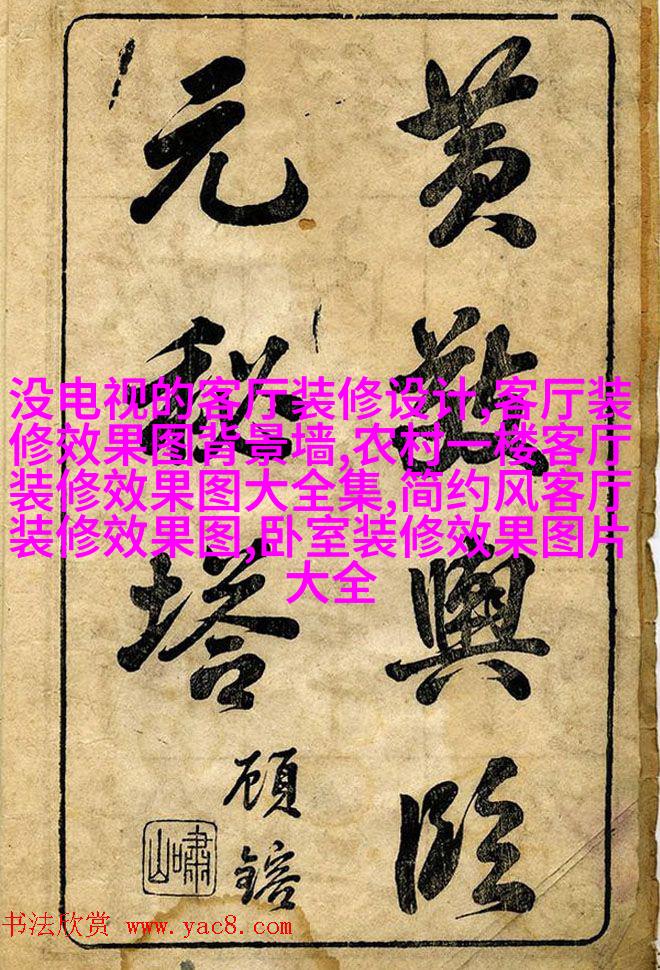 黃敬輿臨
元秘塔
顧鎔
嘯山
没电视的客厅装修设计,客厅装
修效果图背景墙,农村一楼客厅
装修效果图大全集,简约风客厅
装修效果图,卧室装修效果图片
大全
书法欣赏 www.yac8.com